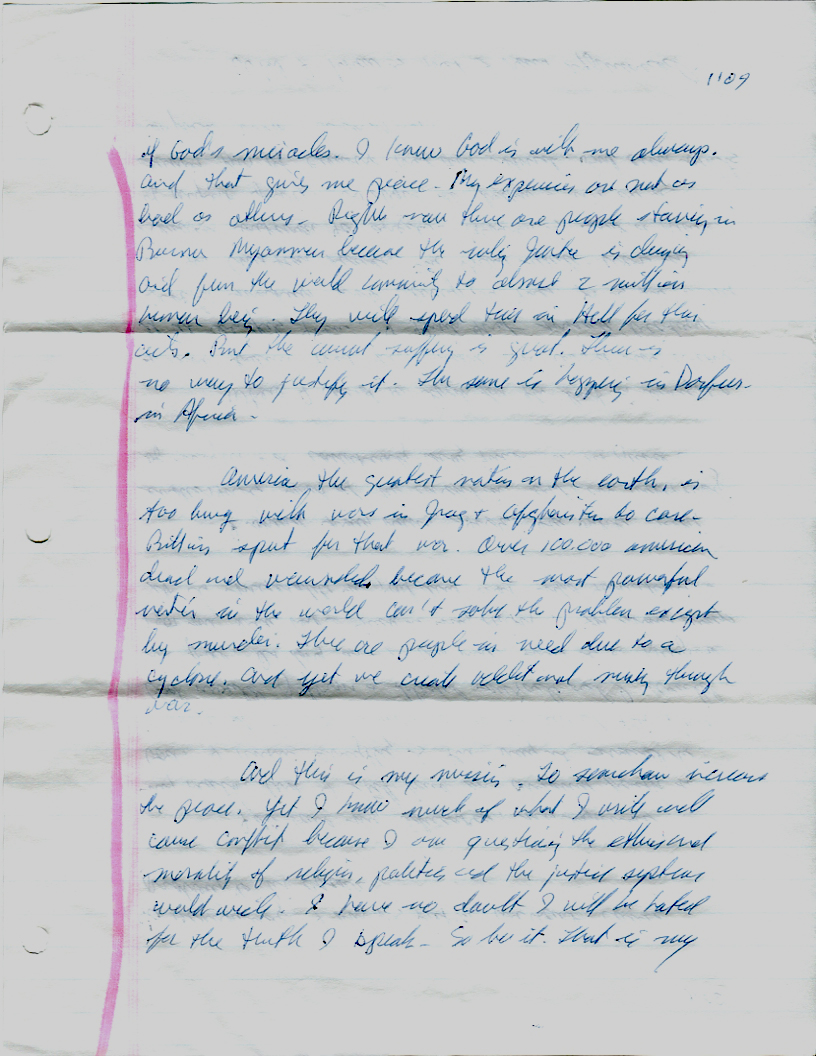 1109
of Gods miracles. I know God is with me always.
And that gives me peace. My expenies are not as
bad as others. Right now there are people staving in
Burma Myanmar because the ruling Junta is denying
aid from the world community to almost 2 million
human being. They will spend time in Hell for their
acts. But the current suffering is great. There is
no way to justify it. The same is happening in Darfur
in Africa.
America, the greatest nation on the earth, is
too busy with wars in Iraq + Afghanistan to care.
Billions spent for that war. Over 100,000 american
dead and wounded because the most powerful
nation in the world can't solve the problem except
by murder. There are people in need due to a
cyclone. And yet we create additional misery through
war.
And this is my mission. To somehow increase
the peace. Yet I know much of what I write will
cause conflict because I am questioning the ethics and
morality of religion, politics and the justice systems
world wide. I have no doubt I will be hated
for the truth I speak. So be it. That is my